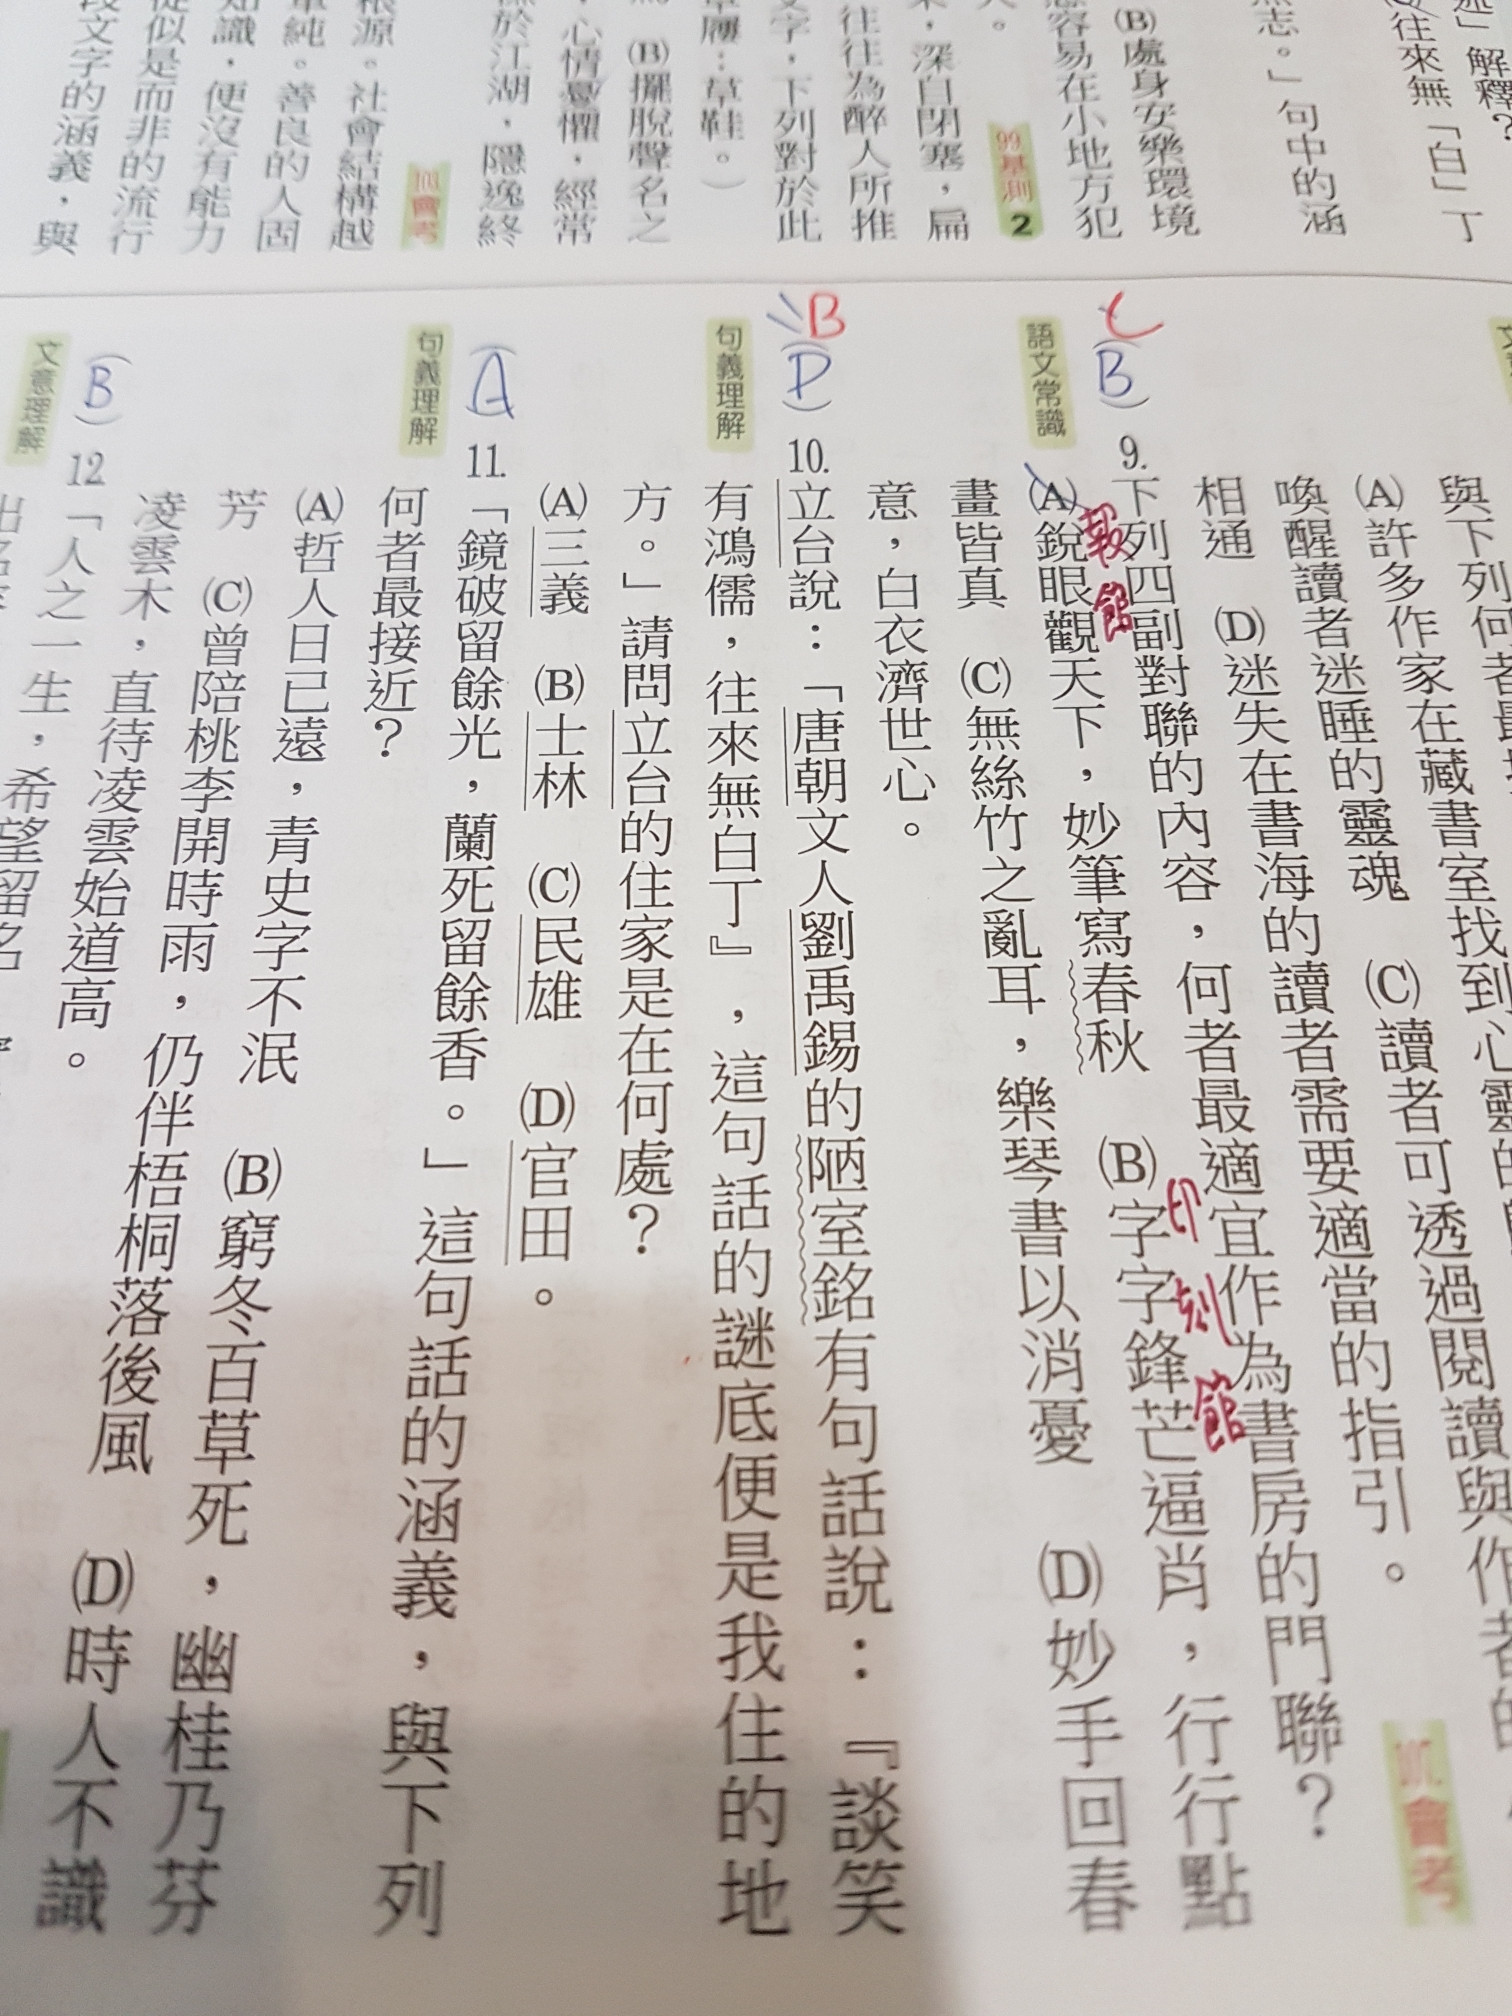 述」解釋？
往來無「白」丁
無志。」句中的涵
(B)處身安樂環境
容易在小地方犯
99基測
2
，深自閉塞，扁
往往為醉人所推
字，下列對於此
草屨：草鞋。）
(B)擺脫聲名之
，心情憂懼，經常
於江湖，隱逸終
103會考
根源。社會結構越
單純。善良的人固
知識，便沒有能力
從似是而非的流行
段文字的涵義，與
與下列何者最
(A)許多作家在藏書室找到心靈的
喚醒讀者迷睡的靈魂　(C)讀者可透過閱讀與作者的
相通　(D)迷失在書海的讀者需要適當的指引。
101會考
C
(B)
9.下列四副對聯的內容，何者最適宜作為書房的門聯？
語文常識
報館
(A)銳眼觀天下，妙筆寫春秋　(B)字字鋒芒逼肖，行行點
印刻館
畫皆真　(C)無絲竹之亂耳，樂琴書以消憂　(D)妙手回春
意，白衣濟世心。
B
(D)
10.立台說：「唐朝文人劉禹錫的陋室銘有句話說：『談笑
句義理解
有鴻儒，往來無白丁』，這句話的謎底便是我住的地
方。」請問立台的住家是在何處？
(A)三義　(B)士林　(C)民雄　(D)官田。
(A)
11.「鏡破留餘光，蘭死留餘香。」這句話的涵義，與下列
句義理解
何者最接近？
(A)哲人日已遠，青史字不泯　(B)窮冬百草死，幽桂乃芬
芳　(C)曾陪桃李開時雨，仍伴梧桐落後風　(D)時人不識
凌雲木，直待凌雲始道高。
(B)
12.「人之一生，希望留名
文意理解